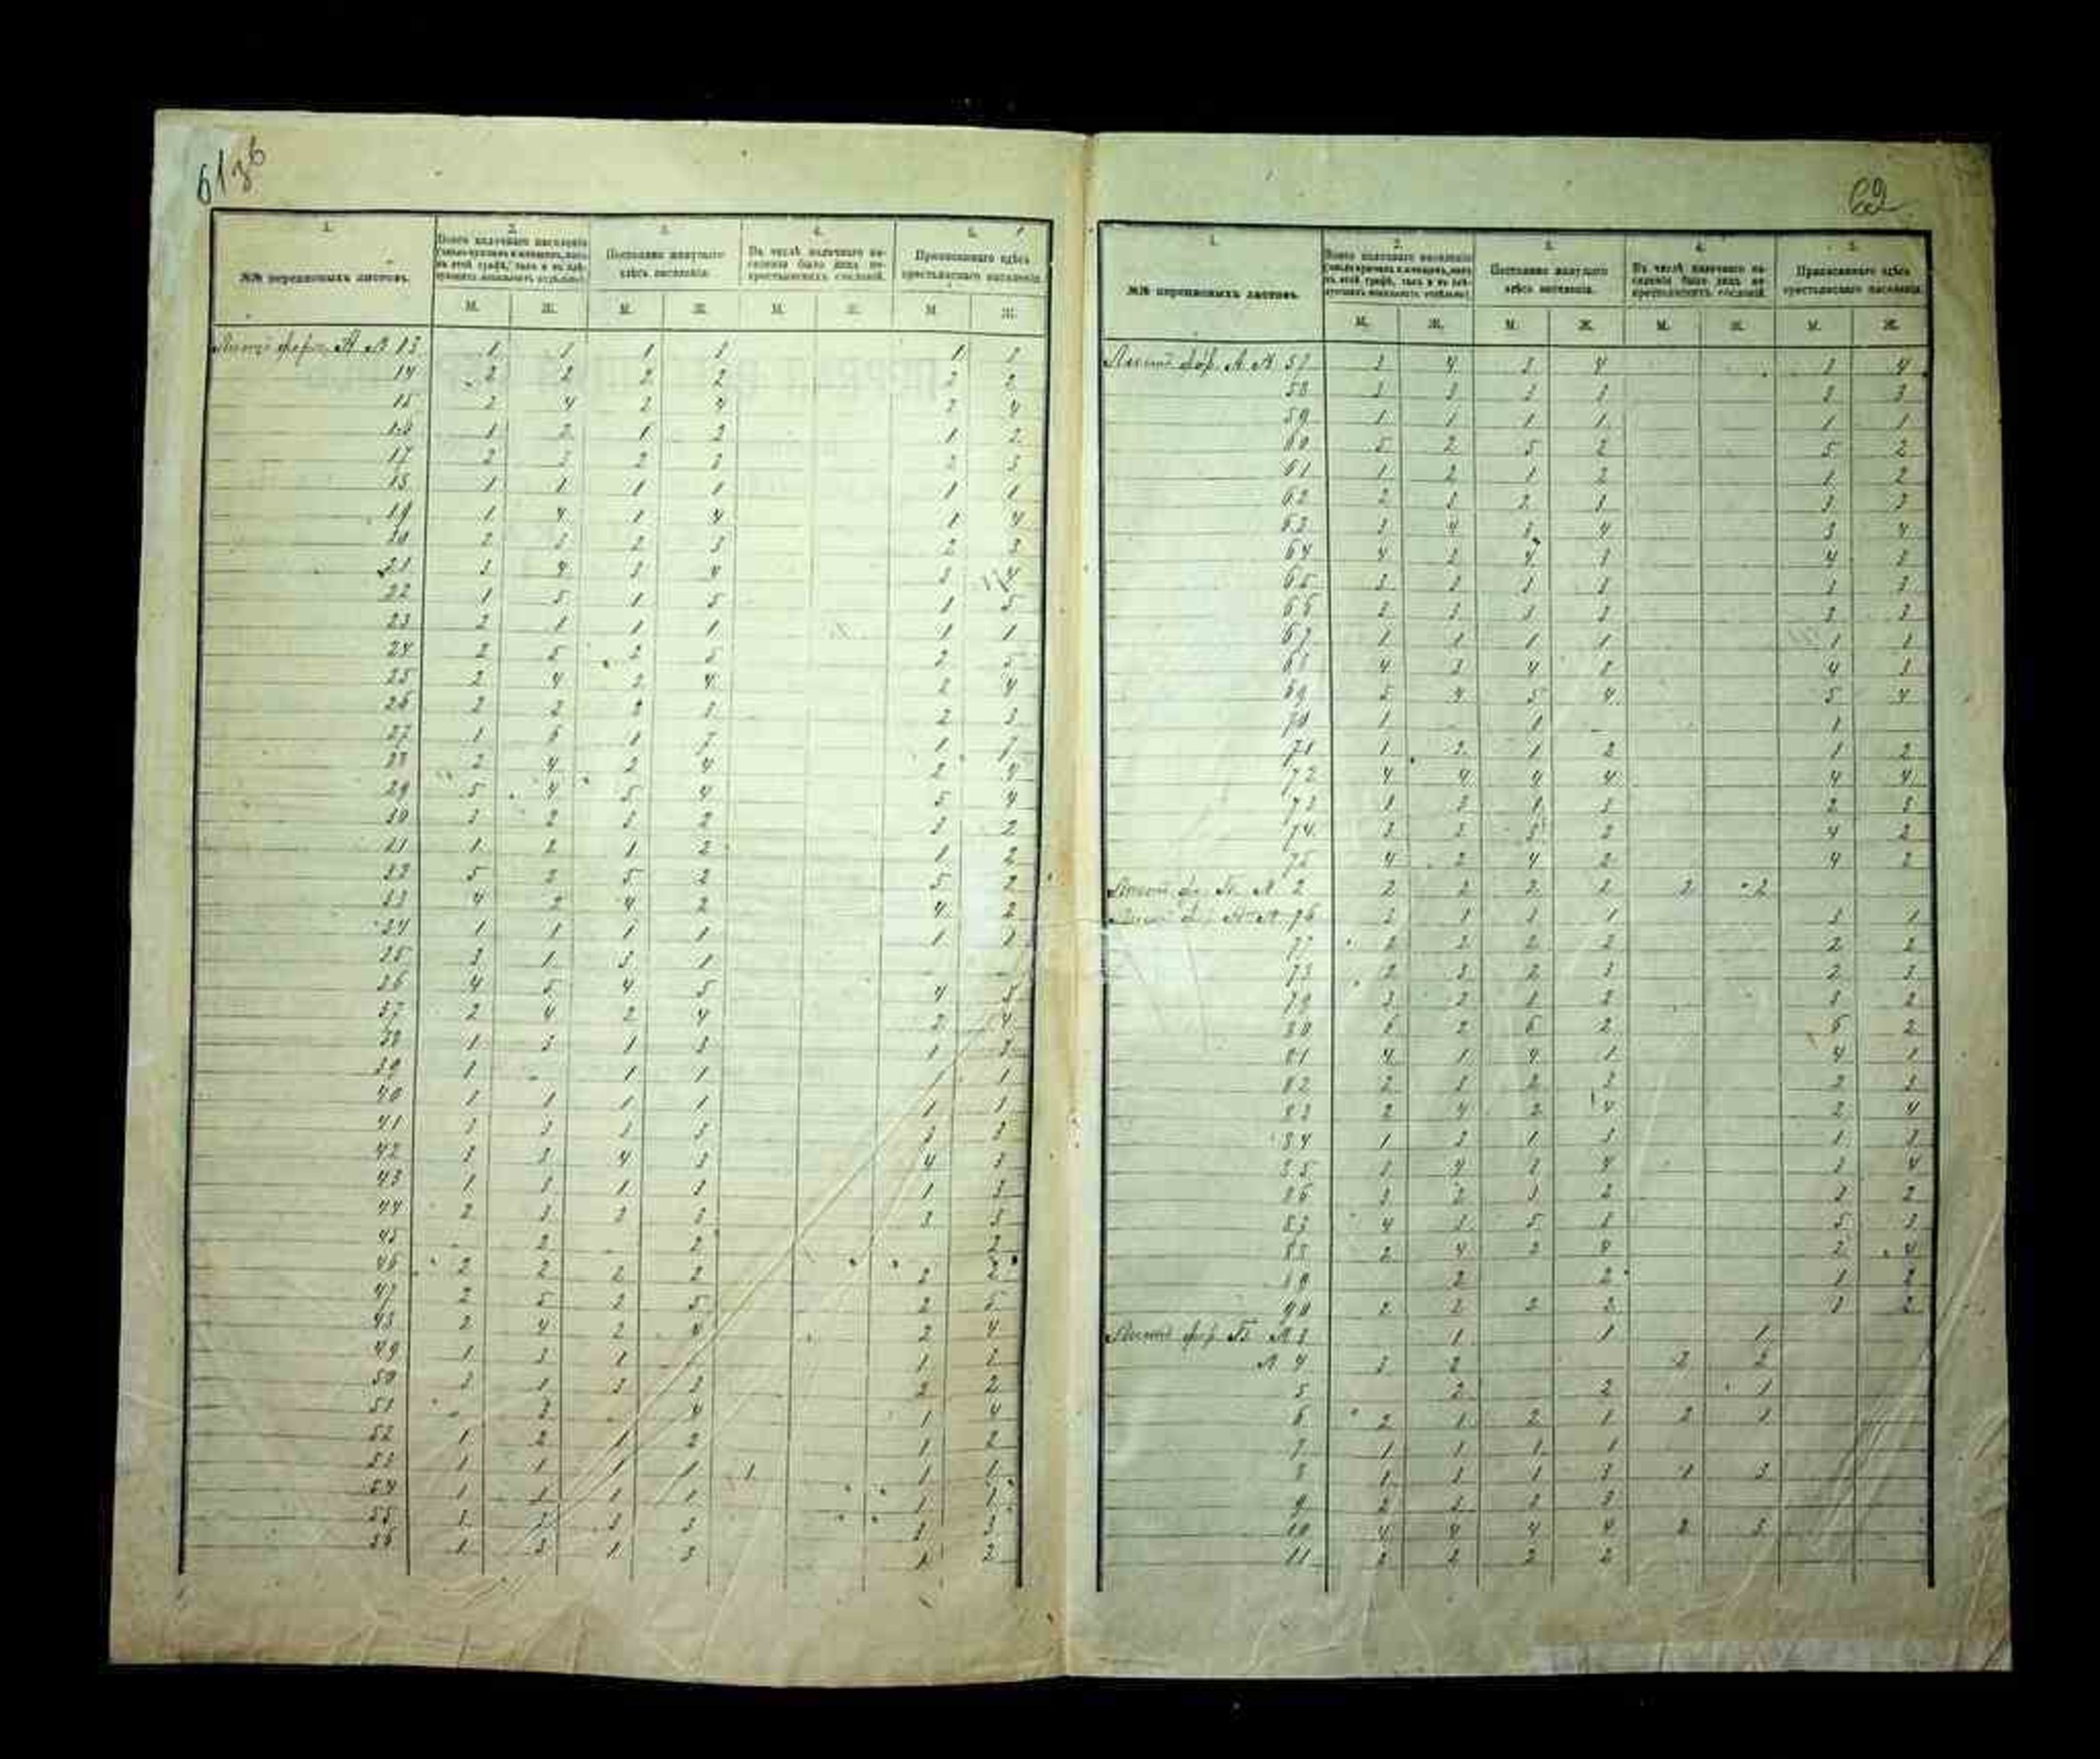 61 зб
1. 2. 3. 4. 5.
№№ переписныхъ листовъ.
Всего наличнаго населенія
Постоянно живущаго здѣсь населенія.
Въ числѣ наличнаго населенія было лицъ не-крестьянскихъ сословій.
Приписаннаго здѣсь крестьянскаго населенія.
М. Ж. М. Ж. М. Ж. М. Ж.
Листъ форм. А № 13 1 1 1 1 1 1
14 2 2 2 2 2 2
15 2 4 2 4 2 4
16 1 2 1 2 1 2
17 2 3 2 3 2 3
18 1 1 1 1 1 1
19 1 4 1 4 1 4
20 2 3 2 3 2 3
21 3 4 3 4 3 4
22 1 5 1 5 1 5
23 2 1 1 1 1 1
24 2 5 2 5 2 5
25 2 4 2 4 2 4
26 2 2 3 2 3
27 1 6 1 7 1 7
28 2 4 2 4 2 4
29 5 4 5 4 5 4
30 3 2 3 2 3 2
31 1 2 1 2 1 2
32 5 2 5 2 5 2
33 4 2 4 2 4 2
34 1 1 1 1 1 1
35 3 1 3 1
36 4 5 4 5 4 5
37 2 4 2 4 2 4
38 1 3 1 3 1 3
39 1 1 1 1
40 1 1 1 1 1 1
41 3 3 3 3 3 3
42 3 3 4 3 4 3
43 1 3 1 3 1 3
44 2 3 3 3 3 3
45 2 2 2
46 2 2 2 2 2 2
47 2 5 2 5 2 5
48 2 4 2 4 2 4
49 1 3 1 1
50 3 1 3 3 2
51 3 4 1 4
52 1 2 1 2 1 2
53 1 1 1 1 1 1 1
54 1 1 1 1 1 1
55 3 3 3 3 3
56 1 3 1 3 1 2
62
1. 2. 3. 4. 5.
№№ переписныхъ листовъ.
Всего наличнаго населенія
Постоянно живущаго здѣсь населенія.
Въ числѣ наличнаго населенія было лицъ не-крестьянскихъ сословій.
Приписаннаго здѣсь крестьянскаго населенія.
М. Ж. М. Ж. М. Ж. М. Ж.
Листъ фор. А № 57 3 4 3 4 3 4
58 3 3 3 3 3 3
59 1 1 1 1 1 1
60 5 2 5 2 5 2
61 1 2 1 2 1 2
62 2 3 2 3 3 3
63 3 4 3 4 3 4
64 4 3 4 3 4 3
65 3 3 3 3 3 3
66 3 3 3 3 3 3
67 1 1 1 1 1 1
68 4 3 4 3 4 3
69 5 4 5 4 5 4
70 1 1 1
71 1 2 1 2 1 2
72 4 4 4 4 4 4
73 1 3 1 3 2 3
74 3 2 3 2 4 2
75 4 2 4 2 4 2
Листъ ф. Б. № 2 2 2 2 2 2 2
Листъ ф. А № 76 3 1 3 1 3 1
77 2 2 2 2 2 2
78 2 3 2 3 2 3
79 3 2 3 2 3 2
80 6 2 6 2 6 2
81 4 1 4 1 4 1
82 2 3 2 3 2 3
83 2 4 2 4 2 4
84 1 3 1 3 1 3
85 3 4 3 4 3 4
86 3 2 3 2 3 2
87 4 3 5 3 5 3
88 2 4 2 4 2 4
89 2 2 1 2
90 2 2 2 2 3 2
Листъ фор. Б № 3 1 1 1
№ 4 3 2 2 2
5 2 2 1
6 2 1 2 1 2 1
7 1 1 1 1
8 1 3 1 3 1 3
9 2 3 3 3
10 4 4 4 4 2 3
11 2 2 2 2